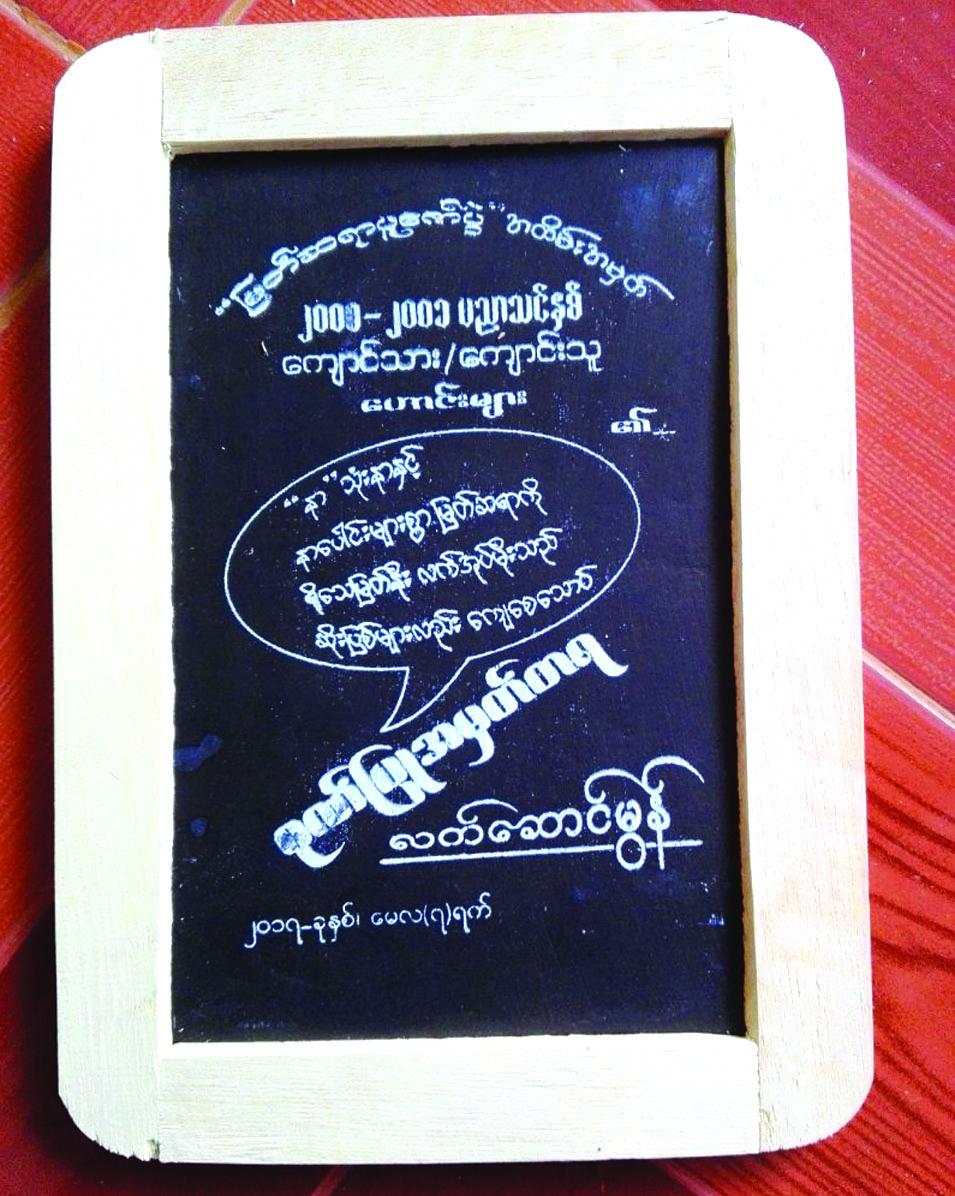 "မြတ်ဆရာပူဇော်ပွဲ" အထိမ်းအမှတ်
၂၀၀၀-၂၀၀၁ ပညာသင်နှစ်
ကျောင်သား/ကျောင်းသူ
ဟောင်းများ
၏
"နာ" သုံးနာနှင့်
နာပေါင်းများစွာ မြတ်ဆရာကို
ရိုသေမြတ်နိုး လက်အုပ်မိုးသည်
ဆိုးပြစ်များလည်း ကျေစေသောဝ်
ဂုဏ်ပြုအမှတ်တရ
လက်ဆောင်မွန်
၂၀၁၇-ခုနှစ်၊ မေလ(၇)ရက်